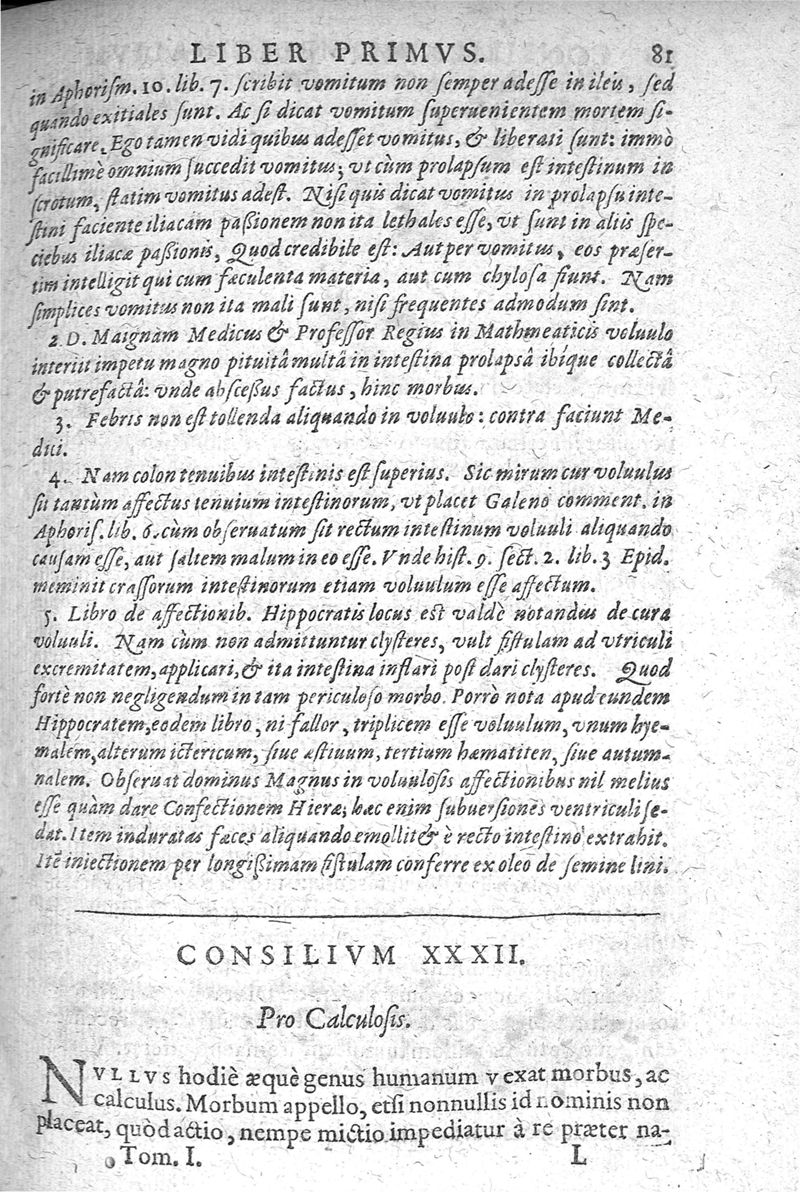 LIBER PRIMVS. 81
in Aphorism. 10. lib. 7. scribit vomitum non semper adesse in ileu, sed
quando exitiales sunt. Ac si dicat vomitum superuenientem mortem si-
gnificare. Ego tamen vidi quibus adesset vomitus, & liberati sunt: immò
facillimè omnium succedit vomitus; vt cùm prolapsum est intestinum in
scrotum, statim vomitus adest. Nisi quis dicat vomitus in prolapsu inte-
stini faciente iliacam paßionem non ita lethales esse, vt sunt in aliis spe-
ciebus iliacæ paßionis, Quod credibile est: Aut per vomitus, eos præser-
tim intelligit qui cum fæculenta materia, aut cum chylosa fiunt. Nam
simplices vomitus non ita mali sunt, nisi frequentes admodum sint.
2. D. Maignam Medicus & Professor Regius in Mathmeaticis voluulo
interiit impetu magno pituitâ multâ in intestina prolapsâ ibique collectâ
& putrefactâ: vnde absceßus factus, hinc morbus.
3. Febris non est tollenda aliquando in voluulo: contra faciunt Me-
dici.
4. Nam colon tenuibus intestinis est superius. Sic mirum cur voluulus
sit tantùm affectus tenuium intestinorum, vt placet Galeno comment. in
Aphoris. lib. 6. cùm obseruatum sit rectum intestinum voluuli aliquando
causam esse, aut saltem malum in eo esse. Vnde hist. 9. sect. 2. lib. 3 Epid.
meminit crassorum intestinorum etiam voluulum esse affectum.
5. Libro de affectionib. Hippocratis locus est valdè notandus de cura
voluuli. Nam cùm non admittuntur clysteres, vult fistulam ad vtriculi
excremitatem, applicari, & ita intestina inflari post dari clysteres. Quod
fortè non negligendum in tam periculoso morbo. Porrò nota apud eundem
Hippocratem, eodem libro, ni fallor, triplicem esse voluulum, vnum hye-
malem, alterum ictericum, siue æstiuum, tertium hæmatiten, siue autum-
nalem. Obseruat dominus Magnus in voluulosis affectionibus nil melius
esse quàm dare Confectionem Hieræ; hæc enim subuersiones ventriculi se-
dat. Item induratas fæces aliquando emollit & è recto intestino extrahit.
Itẽ iniectionem per longißimam fistulam conferre ex oleo de semine lini.
CONSILIVM XXXII.
Pro Calculosis.
NVLLVS hodiè æquè genus humanum vexat morbus, ac
calculus. Morbum appello, etsi nonnullis id nominis non
placeat, quòd actio, nempe mictio impediatur à re præter na-
Tom. I. L